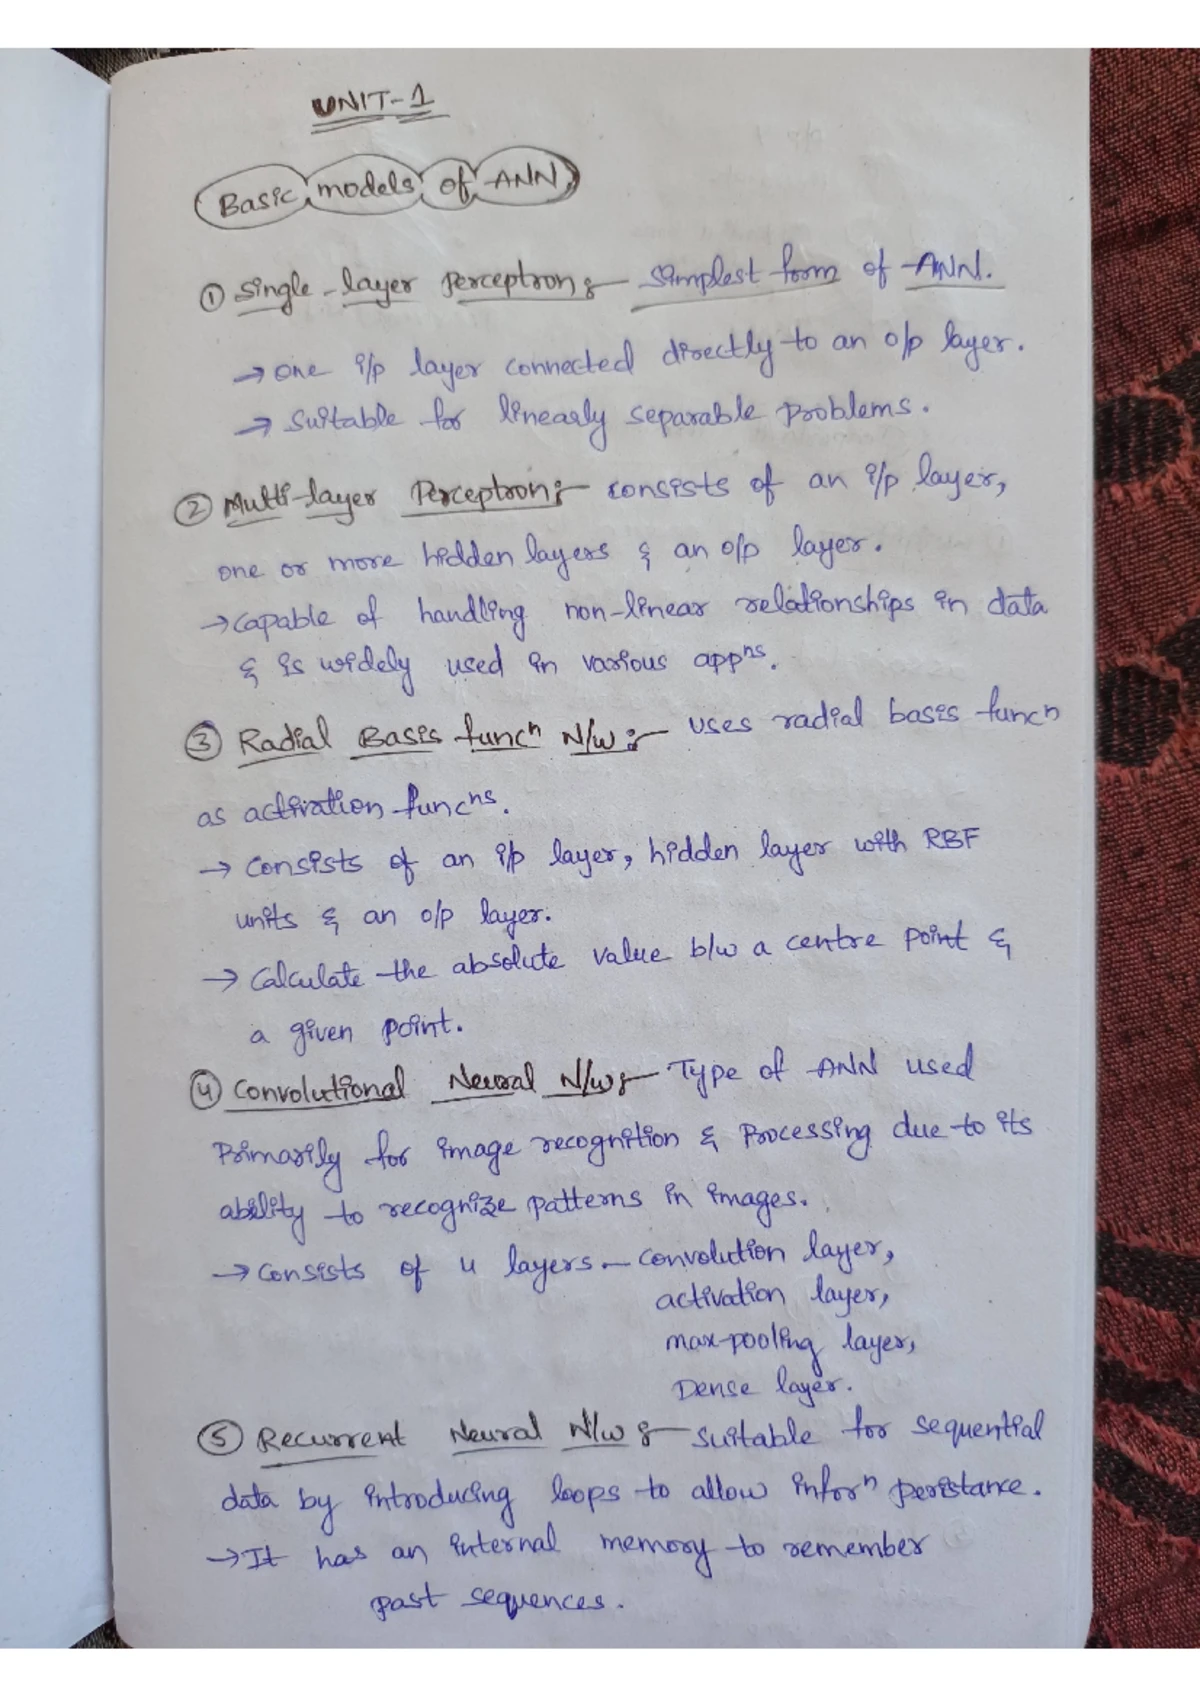 UNIT-1
Basic models of ANN
① Single-layer Perceptron :- Simplest form of ANN.
→ one i/p layer connected directly to an o/p layer.
→ Suitable for linearly separable problems.
② Multi-layer Perceptron :- consists of an i/p layer,
one or more hidden layers & an o/p layer.
→ capable of handling non-linear relationships in data
& is widely used in various appⁿˢ.
③ Radial Basis funcⁿ N/w :- uses radial basis funcⁿ
as activation funcⁿˢ.
→ consists of an i/p layer, hidden layer with RBF
units & an o/p layer.
→ Calculate the absolute value b/w a centre point &
a given point.
④ Convolutional Neural N/w :- Type of ANN used
Primarily for image recognition & Processing due to its
ability to recognize patterns in images.
→ consists of 4 layers - convolution layer,
activation layer,
max-pooling layer,
Dense layer.
⑤ Recurrent Neural N/w :- suitable for sequential
data by introducing loops to allow inforⁿ peristance.
→ It has an internal memory to remember
past sequences.